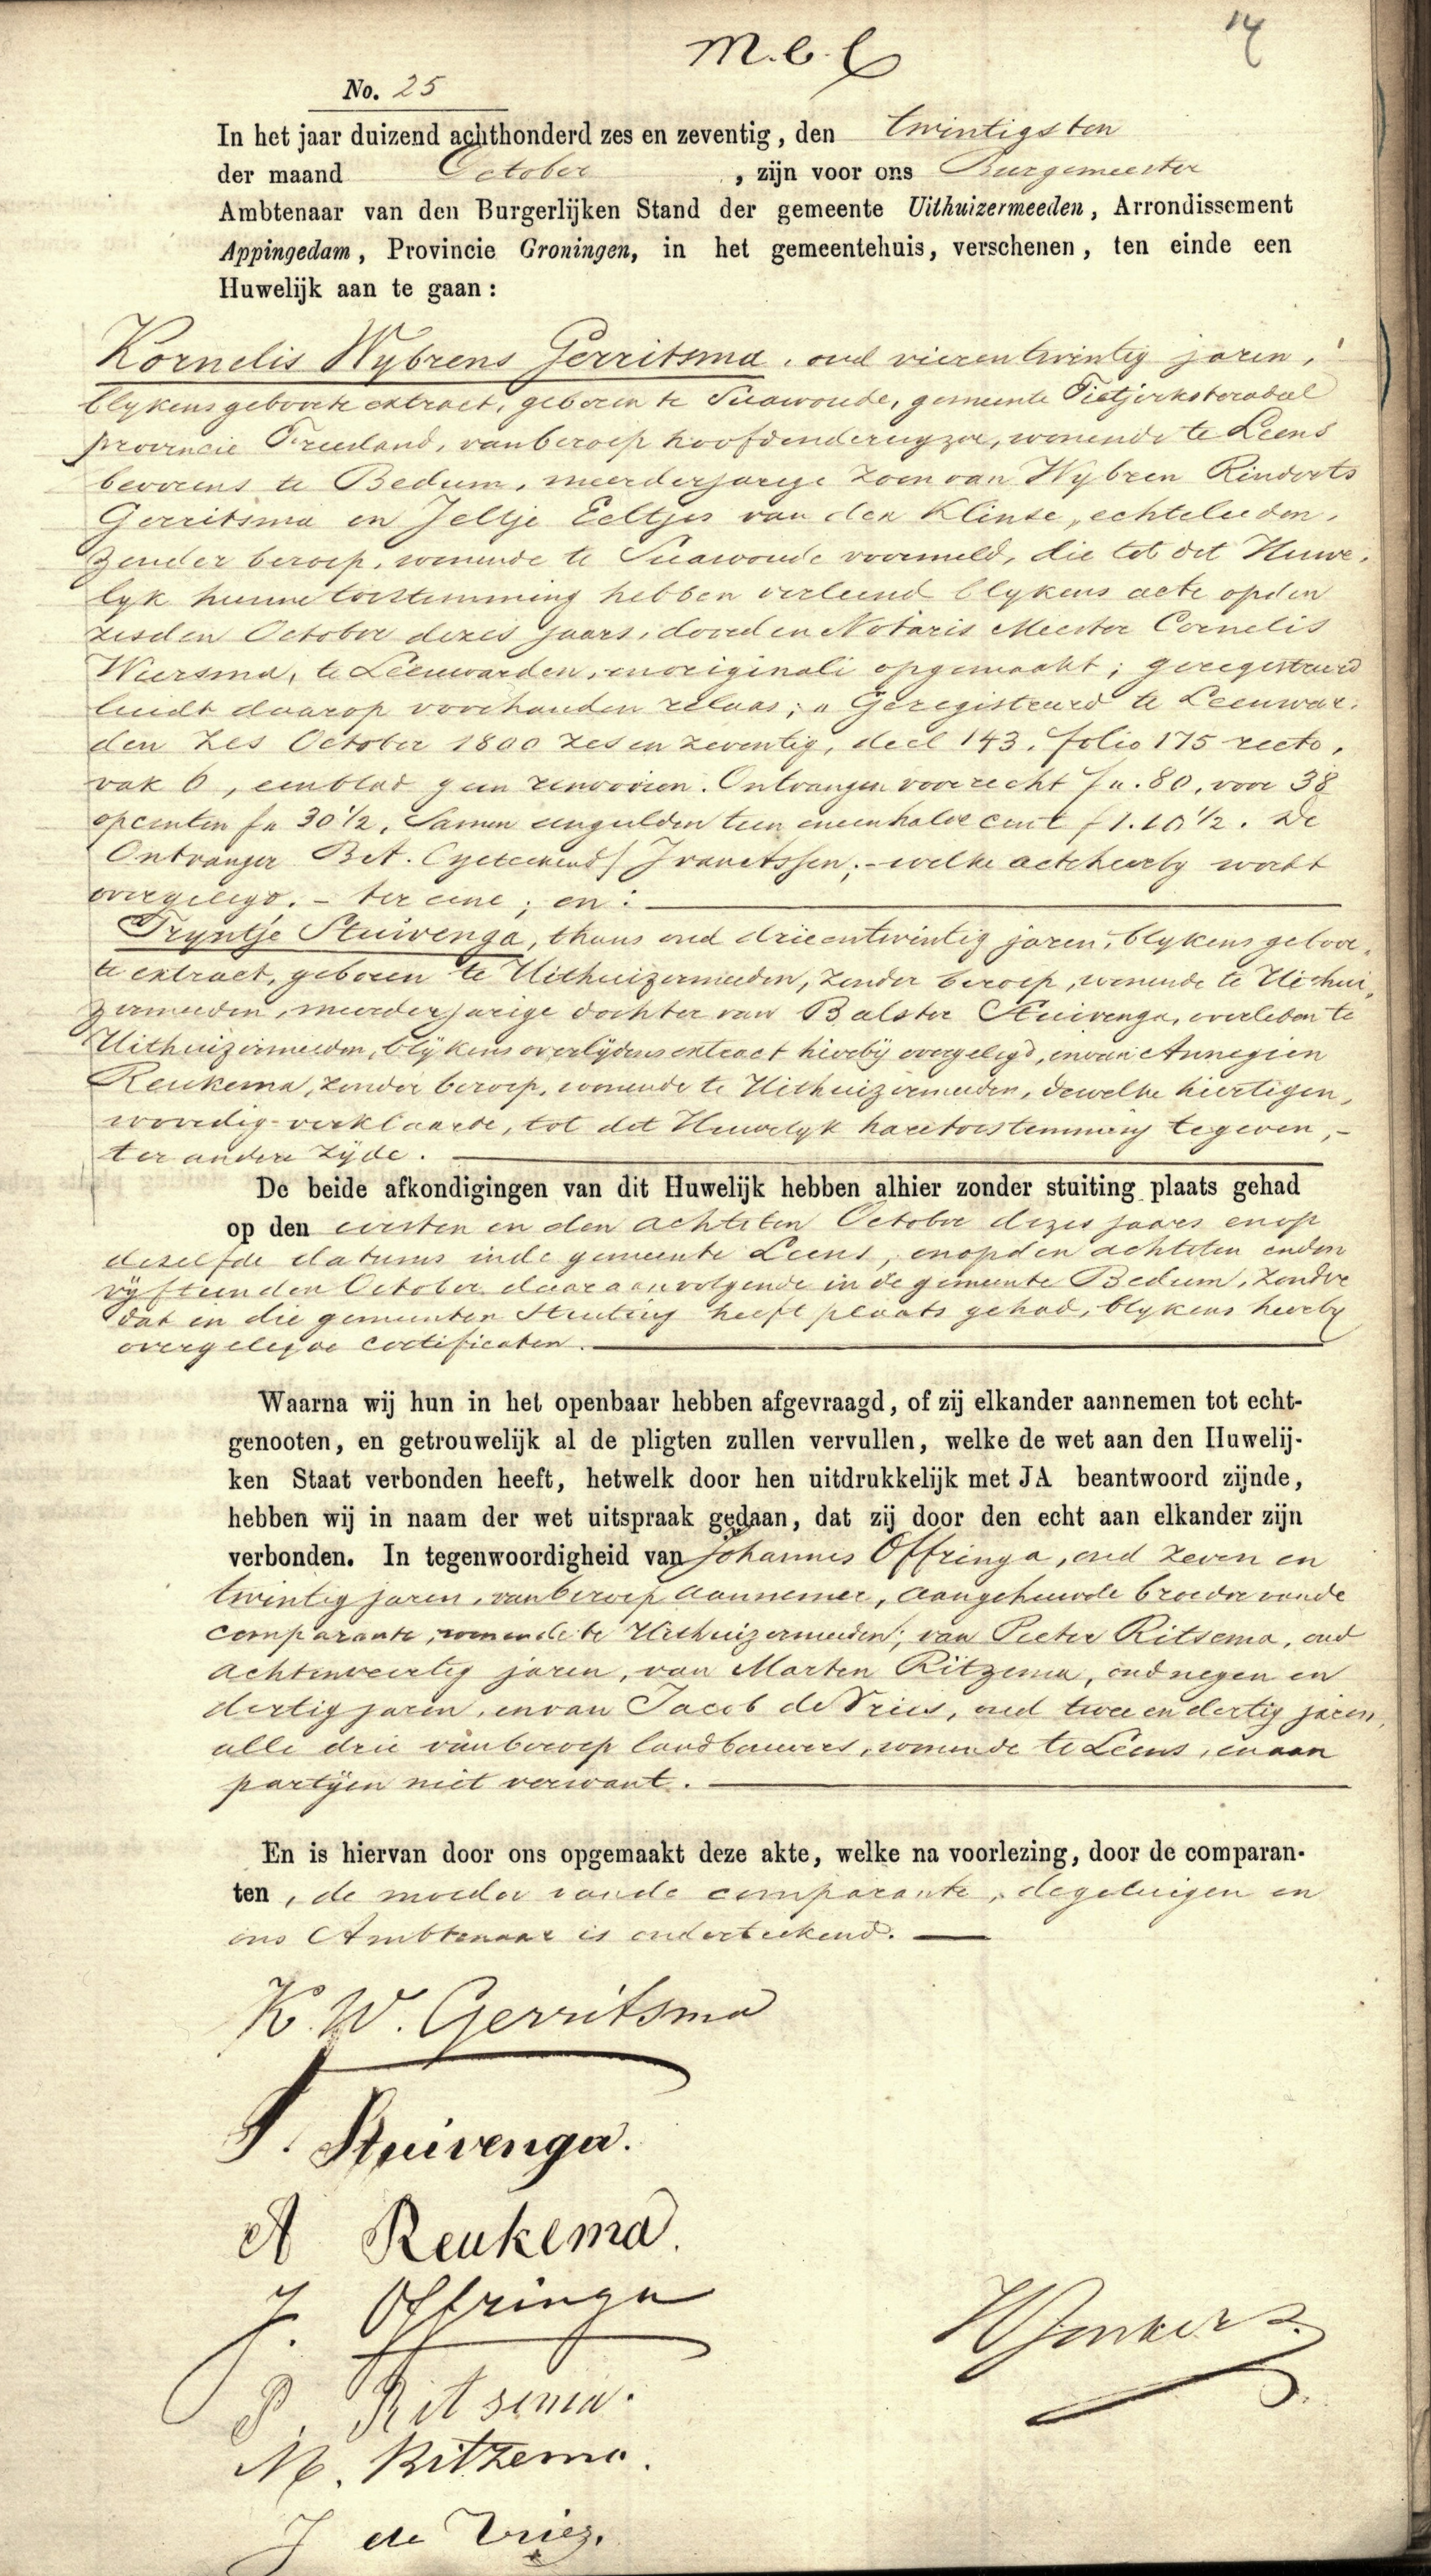 14
M.E.L
No. 25
In het jaar duizend achthonderd zes en zeventig, den twintigsten
der maand October, zijn voor ons Burgemeester
Ambtenaar van den Burgerlijken Stand der gemeente Uithuizermeeden, Arrondissement
Appingedam, Provincie Groningen, in het gemeentehuis, verschenen, ten einde een
Huwelijk aan te gaan:
Kornelis Wybrens Gerritsma, oud vierentwintig jaren,
blykens geboorte extract, geboren te Suawoude, gemeente Tietjerksteradeel
provincie Friesland, van beroep hoofdonderwyzer, wonende te Leens
bevorens te Bedum, meerderjarige zoon van Wybren Rinderts
Gerritsma en Jeltje Eeltjes van der Klinse, echtelieden,
zonder beroep, wonende te Suawoude voormeld, die tot dit Huwe-
lyk hunne toestemming hebben verleend blykens acte op den
zesden October dezes jaars, door den Notaris Meester Cornelis
Wiersma, te Leeuwarden, in originali opgemaakt; geregistreerd
luidt daarop voorhanden relaas; „Geregistreerd te Leeuwar-
den zes October 1800 zes en zeventig, deel 143, folio 175 recto,
vak 6, een blad geen renvooien. Ontvangen voor recht fu. 80, voor 38
opcenten fu 30½, Samen een gulden tien en een halve cent f 1.10½. De
Ontvanger Bet. (geteekend) Franctssen; - welke acte hierby wordt
overgelegd. - ter eene; en:
Tryntje Stuivenga, thans oud drieentwintig jaren, blykens geboor-
te extract, geboren te Uithuizermeeden, zonder beroep, wonende te Uithui-
zermeeden, meerderjarige dochter van Balster Stuivenga, overleden te
Uithuizermeeden, blykens overlydens extract hierbij overgelegd, en van Annegien
Reukema, zonder beroep, wonende te Uithuizermeeden, dewelke hiertegen-
woordig verklaarde, tot dit Huwelyk hare toestemming te geven, -
ter andere zyde.
De beide afkondigingen van dit Huwelijk hebben alhier zonder stuiting plaats gehad
op den eersten en den achtsten October dezes jaars en op
dezelfde datums in de gemeente Leens, en op den achtsten en den
vyftienden October daaraanvolgende in de gemeente Bedum, zonder
dat in die gemeenten Stuiting heeft plaats gehad, blykens hierby
overgelegde certificaten.
Waarna wij hun in het openbaar hebben afgevraagd, of zij elkander aannemen tot echt-
genooten, en getrouwelijk al de pligten zullen vervullen, welke de wet aan den Huwelij-
ken Staat verbonden heeft, hetwelk door hen uitdrukkelijk met JA beantwoord zijnde,
hebben wij in naam der wet uitspraak gedaan, dat zij door den echt aan elkander zijn
verbonden. In tegenwoordigheid van Johannes Offringa, oud zeven en
twintig jaren, van beroep aannemer, aangehuwde broeder van de
comparante, wonende te Uithuizermeeden; van Pieter Ritsema, oud
achtenveertig jaren, van Marten Ritzema, oud negen en
dertig jaren, en van Jacob de Vries, oud twee en dertig jaren,
alle drie van beroep landbouwers, wonende te Leens, en aan
partyen niet verwant.
En is hiervan door ons opgemaakt deze akte, welke na voorlezing, door de comparan-
ten, de moeder van de comparante, de getuigen en
ons Ambtenaar is onderteekend.
K. W. Gerritsma
T. Stuivenga.
A Reukema.
J. Offringa
P. Ritsema.
WJonkers.
M. Ritzema.
J de Vriez.